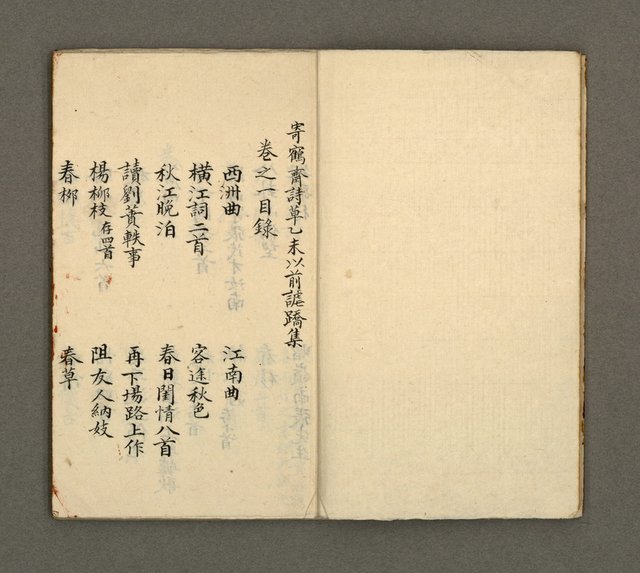 寄鶴齋詩草乙未以前謔蹻集
卷之一目錄
西洲曲　江南曲
橫江詞二首　客途秋色
秋江晚泊　春日閨情八首
讀劉蕡軼事　再下場路上作
楊柳枝存四首　阻友人納妓
春柳　春草